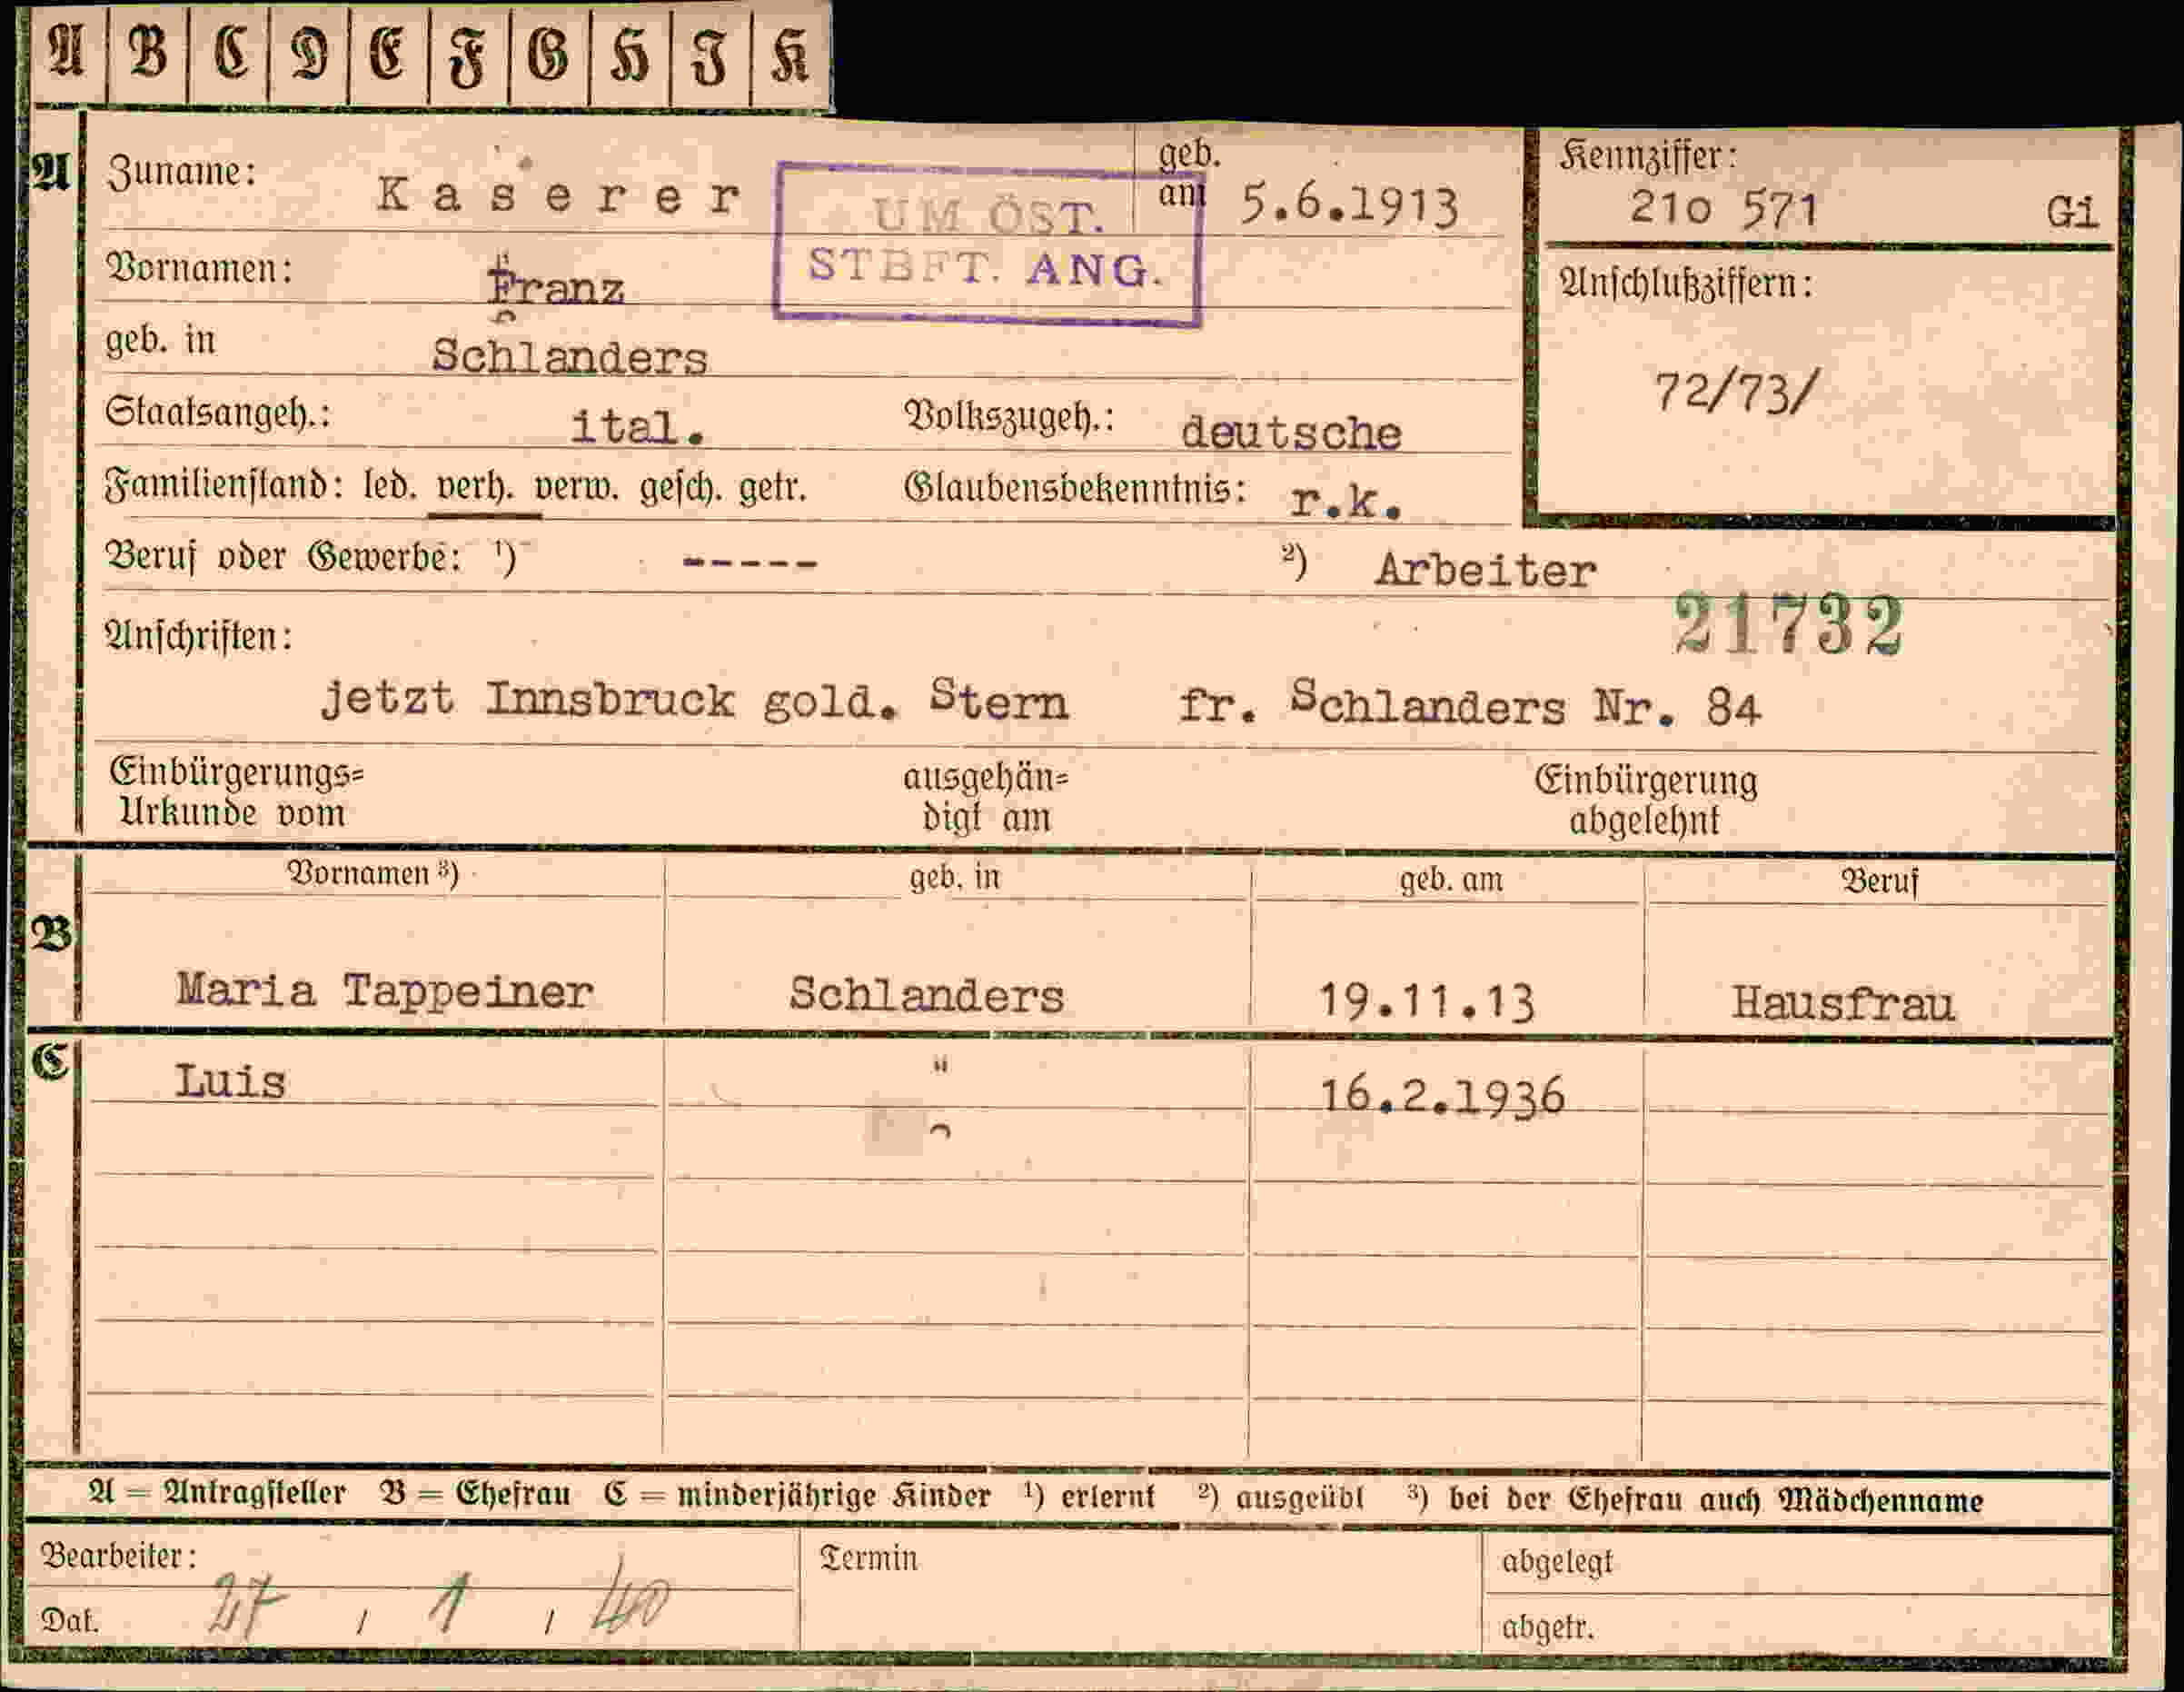 A B C D E F G H J K
A Zuname: Kaserer geb. am 5.6.1913
UM ÖST.
STBFT. ANG.
Kennziffer:
21o 571 Gi
Vornamen: Franz
Anschlußziffern:
72/73/
geb. in Schlanders
Staatsangeh.: ital. Volkszugeh.: deutsche
Familienstand: led. verh. verw. gesch. getr. Glaubensbekenntnis: r.k.
Beruf oder Gewerbe: ¹) ----- ²) Arbeiter
21732
Anschriften:
jetzt Innsbruck gold. Stern fr. Schlanders Nr. 84
Einbürgerungs= ausgehän= Einbürgerung
Urkunde vom digt am abgelehnt
Vornamen ³) geb. in geb. am Beruf
B
Maria Tappeiner Schlanders 19.11.13 Hausfrau
C Luis " 16.2.1936
A = Antragsteller B = Ehefrau C = minderjährige Kinder ¹) erlernt ²) ausgeübt ³) bei der Ehefrau auch Mädchenname
Bearbeiter: Termin abgelegt
Dat. 27 / 1 / 40 abgetr.